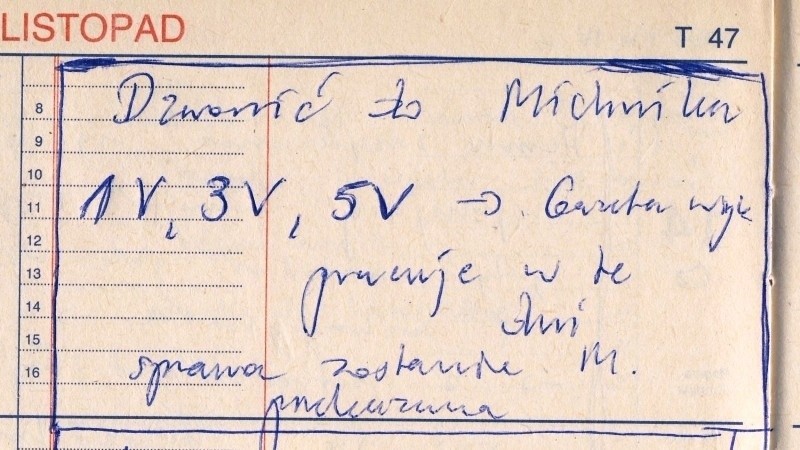 LISTOPAD T 47
8
9
10
11
12
13
14
15
16
Dzwonić do Michnika
1 V, 3 V, 5 V → Gazeta wyb
pracuje w te
dni
sprawa zostanie M.
przekazana